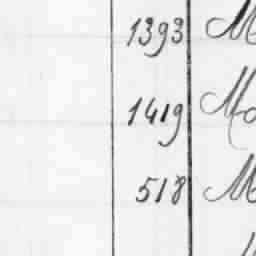 1393 M
1419 Mo
518 M